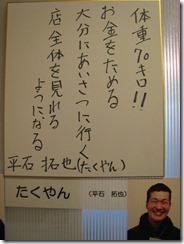 体重70キロ!!
お金をためる
大分にあいさつに行く
店全体を見れる
ようになる
平石 拓也(たくやん)
たくやん
(平石 拓也)